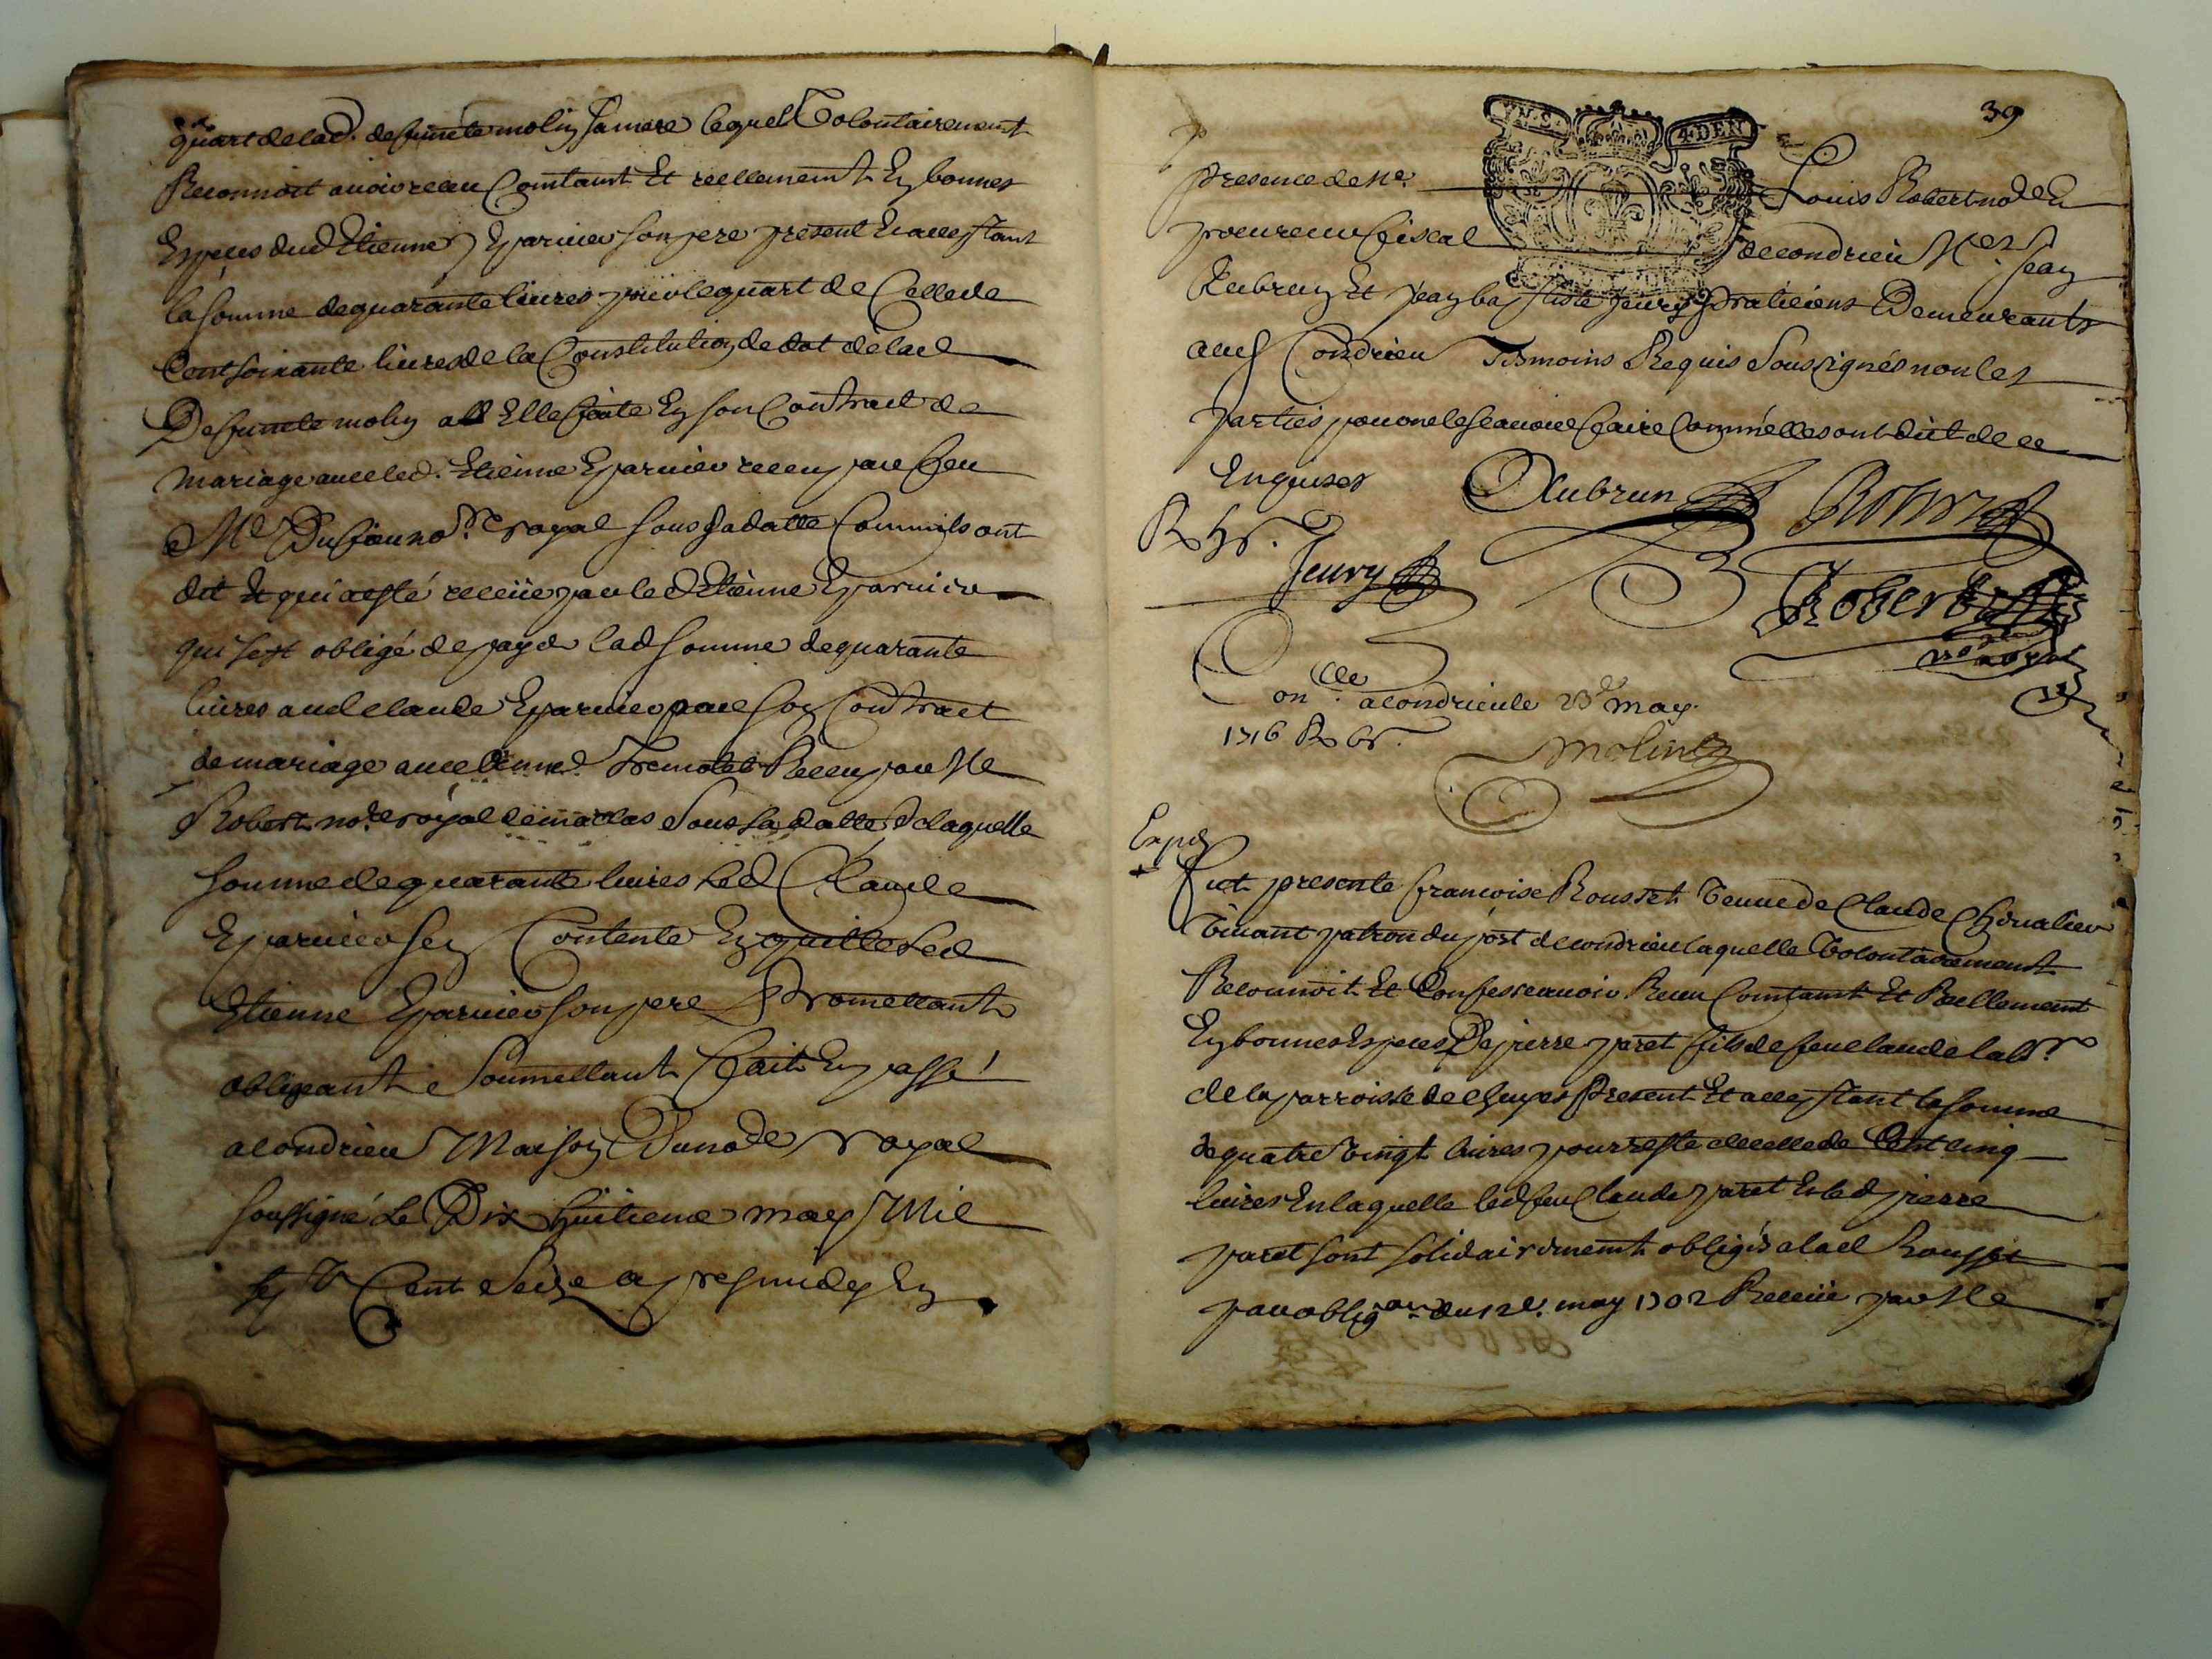 quart de lad. defuncte molin sa mere lequel Volontairement
Reconnoit avoir receu Comtamt Et reellememt En bonnes
Especes dud Etienne Eparvier son pere present Et acceptant
la somme de quarante livres pour le quart de Celle de
Cent soixante livres de la Constitution de dot de lad
Defuncte molin a Elle faite En son Contract de
mariage avec led. Etienne Eparvier receu par feu
Me Dufieu nore. royal sous sa datte Comm'ils ont
dit Et qui a esté receüe par led Etienne Eparvier
qui sest obligé de payer lad somme de quarante
livres aud claude Eparvier par son Contract
de mariage avec Tremolet Receu par Me
Robert nore. royal de maclas Sous sa datte de laquelle
somme de quarante livres led Claude
Eparvier sen Contente En quitte led
Etienne Eparvier son pere Promettant
obligeant Soumettant fait En passé
a Condrieu Maison Du nore royal
soussigné Le Dix huitieme may Mil
sept Cent Seize apres midy En
39
4 DEN
presence de Me. Louis Robert nore Et
procureur fiscal de condrieu Mes Jean
Aubrun Et Jean baptiste Jeury Praticiens Demeurants
aud Condrieu Tesmoins Requis Soussignés non les
parties pour ne le scavoir faire Comm'elles ont dit de ce
Enquises
Aubrun
Jeury
Robert
nore royal
Conlle. a condrieu le 23e may
1716 R 6s.
molin
Exped
Fut presente francoise Rousset Veuve de Claude Chevalier
Vivant patron du port de condrieu laquelle Volontairement
Reconnoit Et Confesse avoir Receu Comtamt Et Reellement
En bonnes Especes De pierre paret fils de feu claude labr.
de la parroisse de chuyes Present Et acceptant la somme
de quatre Vingt livres pour reste de celle de Cent cinq
livres En laquelle led feu Claude paret Et led pierre
paret sont solidairemamt obligés a lad Rousset
par obligaon du 12e. may 1702 Receüe par Me